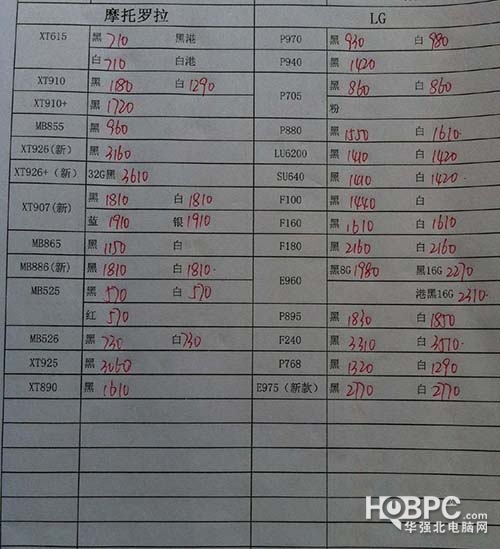 摩托罗拉 LG
XT615 黑 710 黑港 P970 黑 930 白 980
白 710 白港 P940 黑 1420
XT910 黑 1180 白 1290 P705 黑 860 白 860
XT910+ 黑 1720 粉
MB855 黑 960 P880 黑 1550 白 1610
XT926(新) 黑 3160 LU6200 黑 1410 白 1420
XT926+(新) 32G黑 3610 SU640 黑 1410 白 1420
XT907(新) 黑 1810 白 1810 F100 黑 1440 白
蓝 1910 银 1910 F160 黑 1610 白 1610
MB865 黑 1150 白 F180 黑 2160 白 2160
MB886(新) 黑 1810 白 1810 E960 黑8G 1980 黑16G 2270
MB525 黑 570 白 570 港黑16G 2310
红 570 P895 黑 1830 白 1850
MB526 黑 730 白 730 F240 黑 3310 白 3570
XT925 黑 3060 P768 黑 1320 白 1290
XT890 黑 1610 E975(新款) 黑 2770 白 2770
HQBPC.com
华强北电脑网